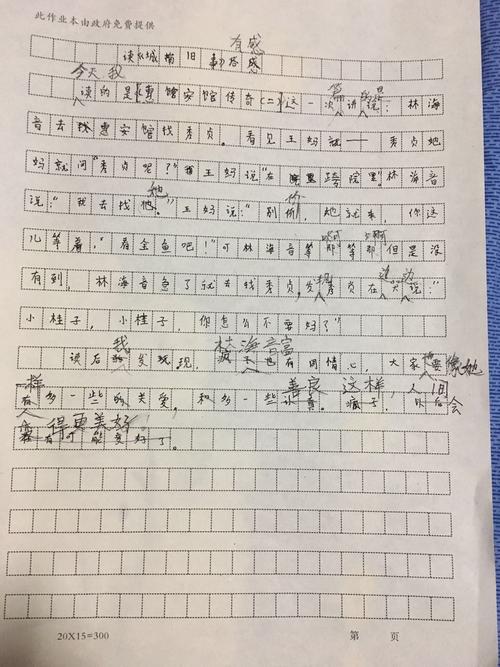 此作业本由政府免费提供
有感
读《城南旧事》
今天我 篇
读的是《惠安馆传奇(二)》这一 讲 说:林海
音去找惠安馆找秀贞。看见王妈就——秀贞她
妈就问"秀贞呢?" 王妈说"在 跨院里"林海音
说:"我去找她。"王妈说:"别价,她就来,你这
儿等着,看金鱼吧!"可林海音等啊等啊但是没
有到,林海音急了就去找秀贞,发现秀贞在边 边说:"
小桂子,小桂子,你怎么不要妈了"
我 林海音富
读后 发现, 也有同情心,大家 要像她
一样 善良 这样,人间
多一些的关爱。和多一些 。 会
得更美好。
20X15=300
第 页